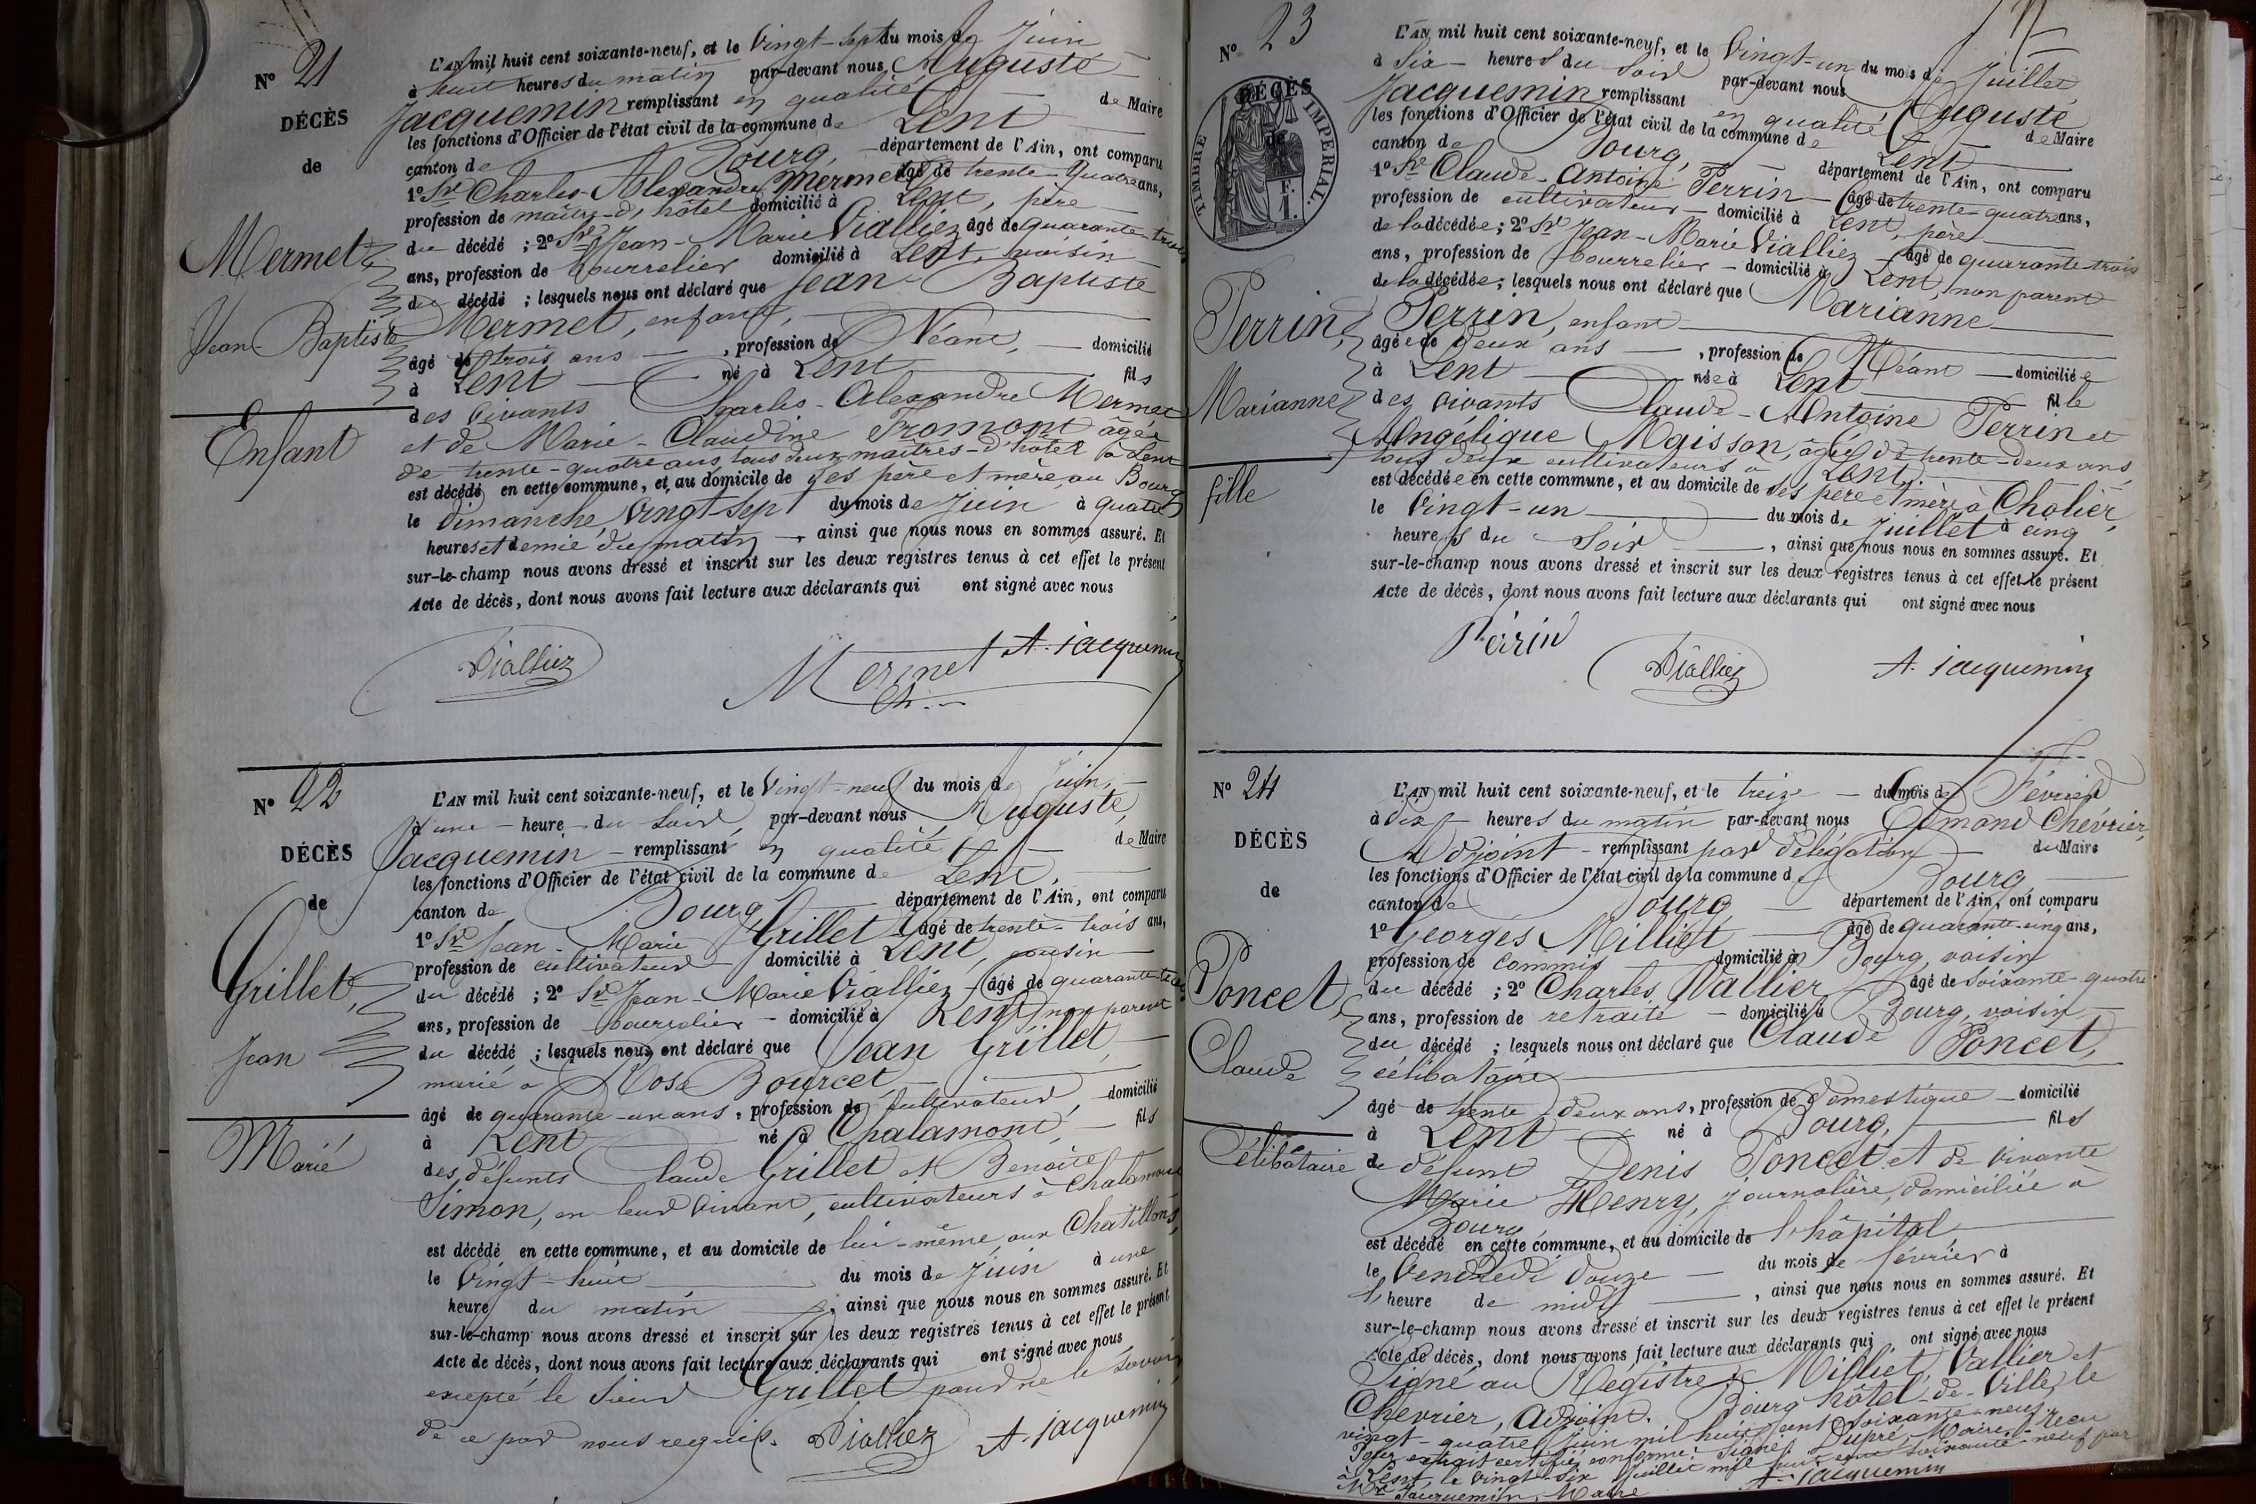 N° 21
DÉCÈS
de
Mermet
Jean Baptiste
Enfant
L'AN mil huit cent soixante-neuf, et le Vingt-sept du mois de Juin
à huit heures du matin par-devant nous Auguste
Jacquemin remplissant en qualité de Maire
les fonctions d'Officier de l'état civil de la commune de Lent
canton de Bourg, département de l'Ain, ont comparu
1° Sr Charles-Alexandre Mermet âgé de trente-quatre ans,
profession de maître-d'hôtel domicilié à Lent, père
du décédé ; 2° Sr Jean-Marie Vialliez âgé de quarante-trois
ans, profession de bourrelier domicilié à Lent, voisin
du décédé ; lesquels nous ont déclaré que Jean-Baptiste
Mermet, enfant,
âgé de trois ans, profession de Néant, domicilié
à Lent né à Lent fils
des vivants Charles-Alexandre Mermet
et de Marie-Claudine Fromont âgée
de trente-quatre ans tous deux maîtres-d'hôtel à Lent
est décédé en cette commune, et au domicile de ses père et mère, au Bourg
le dimanche Vingt sept du mois de Juin à quatre
heures et demie du matin, ainsi que nous nous en sommes assuré. Et
sur-le-champ nous avons dressé et inscrit sur les deux registres tenus à cet effet le présent
Acte de décès, dont nous avons fait lecture aux déclarants qui ont signé avec nous
Vialliez Mermet Ch. A. Jacquemin
N° 22
DÉCÈS
de
Grillet,
Jean
Marié
L'AN mil huit cent soixante-neuf, et le Vingt-neuf du mois de Juin,
à une heure du soir par-devant nous Auguste
Jacquemin remplissant en qualité de Maire
les fonctions d'Officier de l'état civil de la commune de Lent,
canton de Bourg, département de l'Ain, ont comparu
1° Sr Jean-Marie Grillet âgé de trente-trois ans,
profession de cultivateur domicilié à Lent, cousin
du décédé ; 2° Sr Jean-Marie Vialliez âgé de quarante-trois
ans, profession de bourrelier domicilié à Lent, non parent
du décédé ; lesquels nous ont déclaré que Jean Grillet,
marié à Rose Bourcet
âgé de quarante-un ans, profession de cultivateur, domicilié
à Lent né à Chalamont, fils
des défunts Claude Grillet et Benoîte
Simon, en leur vivant, cultivateurs à Chalamont
est décédé en cette commune, et au domicile de lui-même, aux Chatillons,
le Vingt-huit du mois de Juin à une
heure du matin, ainsi que nous nous en sommes assuré. Et
sur-le-champ nous avons dressé et inscrit sur les deux registres tenus à cet effet le présent
Acte de décès, dont nous avons fait lecture aux déclarants qui ont signé avec nous
excepté le sieur Grillet pour ne le savoir
de ce par nous requis. Vialliez A. Jacquemin
N° 23
DÉCÈS
de
TIMBRE IMPERIAL.
Perrin,
Marianne
fille
L'AN mil huit cent soixante-neuf, et le Vingt-un du mois de Juillet
à Six heures du Soir par-devant nous Auguste
Jacquemin remplissant en qualité de Maire
les fonctions d'Officier de l'état civil de la commune de Lent
canton de Bourg, département de l'Ain, ont comparu
1° Sr Claude-Antoine Perrin âgé de trente-quatre ans,
profession de cultivateur domicilié à Lent, père
de la décédée ; 2° Sr Jean-Marie Vialliez âgé de quarante-trois
ans, profession de bourrelier domicilié à Lent, non parent
de la décédée ; lesquels nous ont déclaré que Marianne
Perrin, enfant
âgée de Deux ans, profession de Néant domiciliée
à Lent née à Lent fille
des vivants Claude-Antoine Perrin et
Angélique Maisson, âgée de trente-deux ans,
tous deux cultivateurs à Lent,
est décédée en cette commune, et au domicile de ses père et mère à Cholier,
le Vingt-un du mois de Juillet à cinq
heures du Soir, ainsi que nous nous en sommes assuré. Et
sur-le-champ nous avons dressé et inscrit sur les deux registres tenus à cet effet le présent
Acte de décès, dont nous avons fait lecture aux déclarants qui ont signé avec nous
Périn Vialliez A. Jacquemin
N° 24
DÉCÈS
de
Poncet
Claude
Célibataire
L'AN mil huit cent soixante-neuf, et le treize du mois de Février
à dix heures du matin par-devant nous Edmond Chevrier,
Adjoint remplissant par délégation du Maire
les fonctions d'Officier de l'état civil de la commune de Bourg,
canton de Bourg département de l'Ain, ont comparu
1° Georges Milliet âgé de quarante-cinq ans,
profession de commis domicilié à Bourg, voisin
du décédé ; 2° Charles Vallier âgé de soixante-quatre
ans, profession de retraité domicilié à Bourg, voisin
du décédé ; lesquels nous ont déclaré que Claude Poncet,
célibataire
âgé de trente deux ans, profession de domestique domicilié
à Lent né à Bourg, fils
de défunt Denis Poncet et de vivante
Marie Henry, journalière, domiciliée à
Bourg
est décédé en cette commune, et au domicile de l'hôpital
le Vendredi douze du mois de février à
l'heure de midi, ainsi que nous nous en sommes assuré. Et
sur-le-champ nous avons dressé et inscrit sur les deux registres tenus à cet effet le présent
Acte de décès, dont nous avons fait lecture aux déclarants qui ont signé avec nous
Signé au Registre : Milliet, Vallier et
Chevrier, Adjoint. Bourg hôtel-de-Ville, le
vingt-quatre Juin mil huit cent soixante-neuf.
Pour extrait certifié conforme : Signé, Dupré, Maire. reçu
à Lent, le vingt-six Juillet mil huit cent soixante-neuf par
Mr Jacquemin, Maire A. Jacquemin